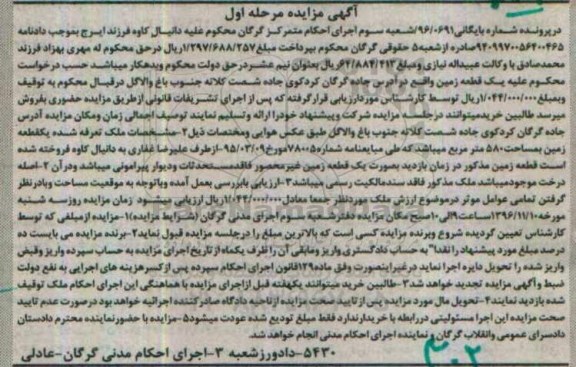 آگهی مزایده مرحله اول
درپرونده شماره بایگانی۹۶/۰۶۹۱/شعبه سوم اجرای احکام متمرکز گرگان محکوم علیه دانیال کاوه فرزند ایرج بموجب دادنامه
صادره از شعبه۵ حقوقی گرگان محکوم بپرداخت مبلغ۱/۲۹۷/۶۸۸/۲۵۷ریال درحق محکوم له مهری بهزاد فرزند
محمدصادق با وکالت عبیداله نیازی ومبلغ۶۴/۸۸۴/۴۱۳ریال بعنوان نیم عشردرحق دولت محکوم وبدهکار میباشد حسب درخواست
محکوم علیه یک قطعه زمین واقع درآدرس جاده گرگان کردکوی جاده شصت کلاته جنوب باغ والاگل درقبال محکوم به توقیف
وبمبلغ۱/۰۴۴/۰۰۰/۰۰۰ریال توسط کارشناس موردارزیابی قرارگرفته که پس از اجرای تشریفات قانونی ازطریق مزایده حضوری بفروش
میرسد طالبین خریدمیتوانند درجلسه مزایده شرکت وپیشنهاد خودرا ارائه وتسلیم نمایند توصیف اجمالی زمان ومکان مزایده آدرس
جاده گرگان کردکوی جاده شصت کلاته جنوب باغ والاگل طبق عکس هوایی ومختصات ذیل۲-مشخصات ملک تعرفه شده یکقطعه
زمین بمساحت۵۸۰ متر مربع میباشدکه طی مبایعنامه شماره۷۸۰۰۵مورخ۹۵/۰۳/۰۹ازطرف علیرضا غفاری به دانیال کاوه فروخته شده
است قطعه زمین مذکور در زمان بازدید بصورت یک قطعه زمین غیرمحصور فاقدمستحدثات ودیوار پیرامونی میباشد ودرآن ۲-اصله
درخت موجودمیباشد ملک مذکور فاقد سندمالکیت رسمی میباشد۳-ارزیابی بابررسی بعمل آمده وباتوجه به موقعیت مساحت وبادرنظر
گرفتن تمامی عوامل موثر درموضوع ارزش ملک موردنظر جمعا معادل۱/۰۴۴/۰۰۰/۰۰۰ریال ارزیابی میشود زمان مزایده روزسه شنبه
مورخه۱۳۹۶/۱۱/۱۰ساعت۹الی۱۰صبح مکان مزایده دفترشعبه سوم اجرای مدنی گرگان (شرایط مزایده)۱-مزایده ازمبلغی که توسط
کارشناس تعیین گردیده شروع وبرنده مزایده کسی است که بالاترین مبلغ را درجلسه مزایده قبول نماید۲-برنده مزایده می بایست ده
درصد مبلغ مورد پیشنهاد را نقدا" به حساب دادگستری واریز ومابقی آن را ظرف یکماه از تاریخ اجرای مزایده به حساب سپرده واریز وقبض
واریز شده را تحویل دایره اجرا نماید درغیراینصورت وفق ماده۱۲۹قانون اجرای احکام سپرده پس ازکسرهزینه های اجرایی به نفع دولت
ضبط وآگهی مزایده تجدید خواهد شد۳-طالبین خرید میتوانند یکهفته قبل ازاجرای مزایده با هماهنگی این اجرای احکام ملک توقیف
شده بازدید نمایند۴-تحویل مال مورد مزایده پس از تایید صحت مزایده ازناحیه دادگاه صادرکننده اجرائیه خواهد بود درصورت عدم تایید
صحت مزایده این اجرا مسئولیتی دررابطه با خریدارندارد فقط مبلغ تودیع شده عودت میشود۵-مزایده با حضورنماینده محترم دادستان
دادسرای عمومی وانقلاب گرگان و نماینده اجرای احکام مدنی انجام خواهد شد.
۵۴۳۰-دادورزشعبه ۳-اجرای احکام مدنی گرگان-عادلی